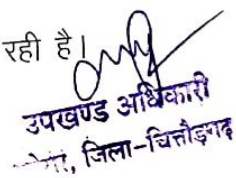 रही है।
उपखण्ड अधिकारी
जिला-चित्तौड़गढ़